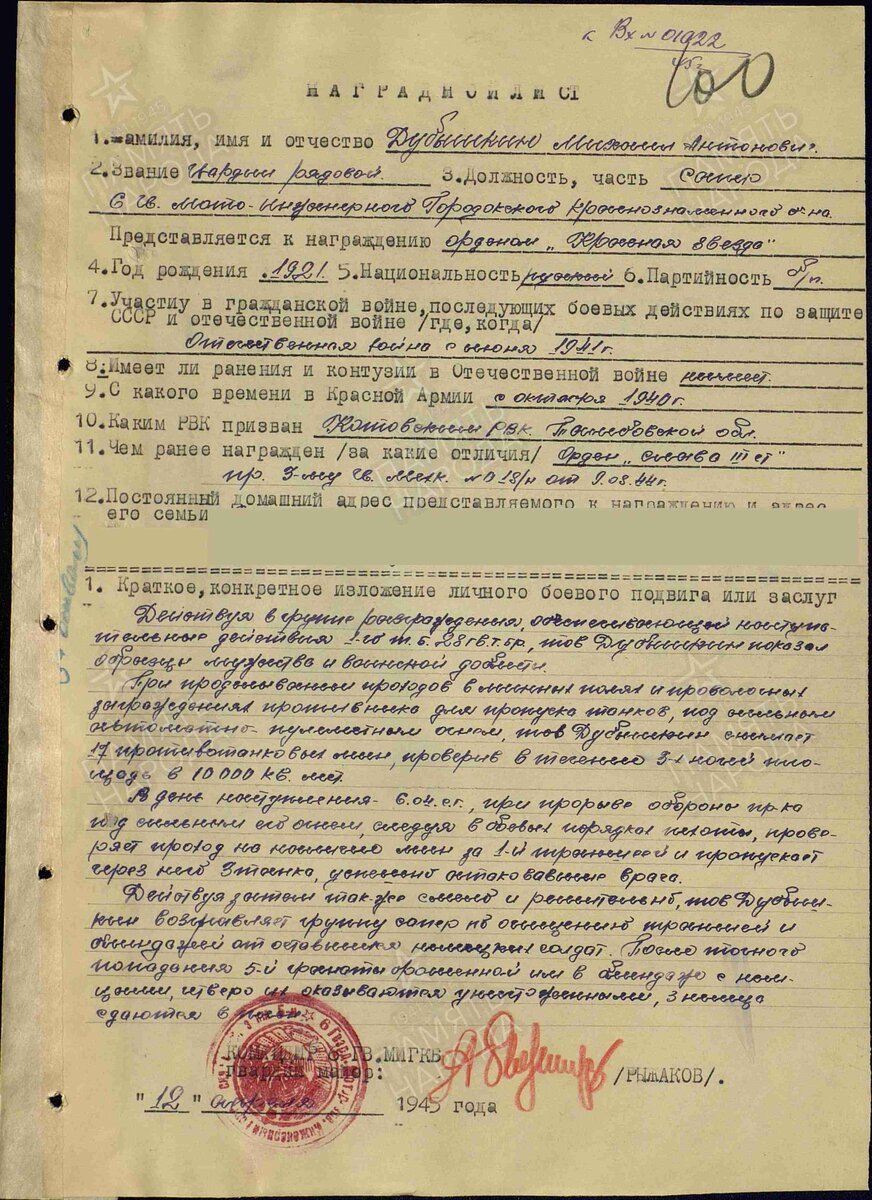 к Вх № 01922
45 г
100
НАГРАДНОЙ ЛИСТ
1. Фамилия, имя и отчество Дубышкин Михаил Антонович.
2. Звание Гвардии рядовой. 3. Должность, часть Сапер
6 Гв. Мото-Инженерного Городокского Краснознаменного б-на
Представляется к награждению орденом „Красная звезда"
4. Год рождения 1921. 5. Национальность русский 6. Партийность б/п.
7. Участиу в гражданской войне, последующих боевых действиях по защите
СССР и отечественной войне /где, когда/
Отечественная война с июня 1941 г.
8. Имеет ли ранения и контузии в Отечественной войне не имеет.
9. С какого времени в Красной Армии с октября 1940 г.
10. Каким РВК призван Котовским РВК Тамбовской обл.
11. Чем ранее награжден /за какие отличия/ Орден „Слава III ст"
пр. 3-му Гв. Мехк. № 018/н от 9.08.44 г.
12. Постоянный домашний адрес представляемого к награждению и адрес
его семьи
1. Краткое, конкретное изложение личного боевого подвига или заслуг
Действуя в группе разграждения, обеспечивающей наступа-
тельные действия 1-го т.б. 28 гв.т.бр., тов Дубышкин показал
образцы мужества и воинской доблести.
При проделывании проходов в минных полях и проволочных
заграждениях противника для пропуска танков, под сильным
автоматно-пулеметным огнем, тов Дубышкин снимает
17 противотанковых мин, проверив в течение 3-х ночей пло-
щадь в 10 000 кв. мт.
В день наступления - 6.04 с.г., при прорыве обороны пр-ка
под сильным его огнем, следуя в боевых порядках пехоты, прове-
ряет проход на наличие мин за 1-й траншеей и пропускает
через него 3 танка, успешно атаковавшие врага.
Действуя затем так-же смело и решительно, тов Дубыш-
кин возглавляет группу сапер по очищению траншей и
блиндажей от оставшихся немецких солдат. После точного
попадания 5-й гранаты брошенной им в блиндаж с нем-
цами, четверо их оказываются уничтоженными, 3 немца
сдаются в плен.
КОМАНДИР 6 ГВ. МИГКБ
гвардии майор: /РЫЖАКОВ/.
"12" апреля 1945 года
ПАМЯТЬ НАРОДА